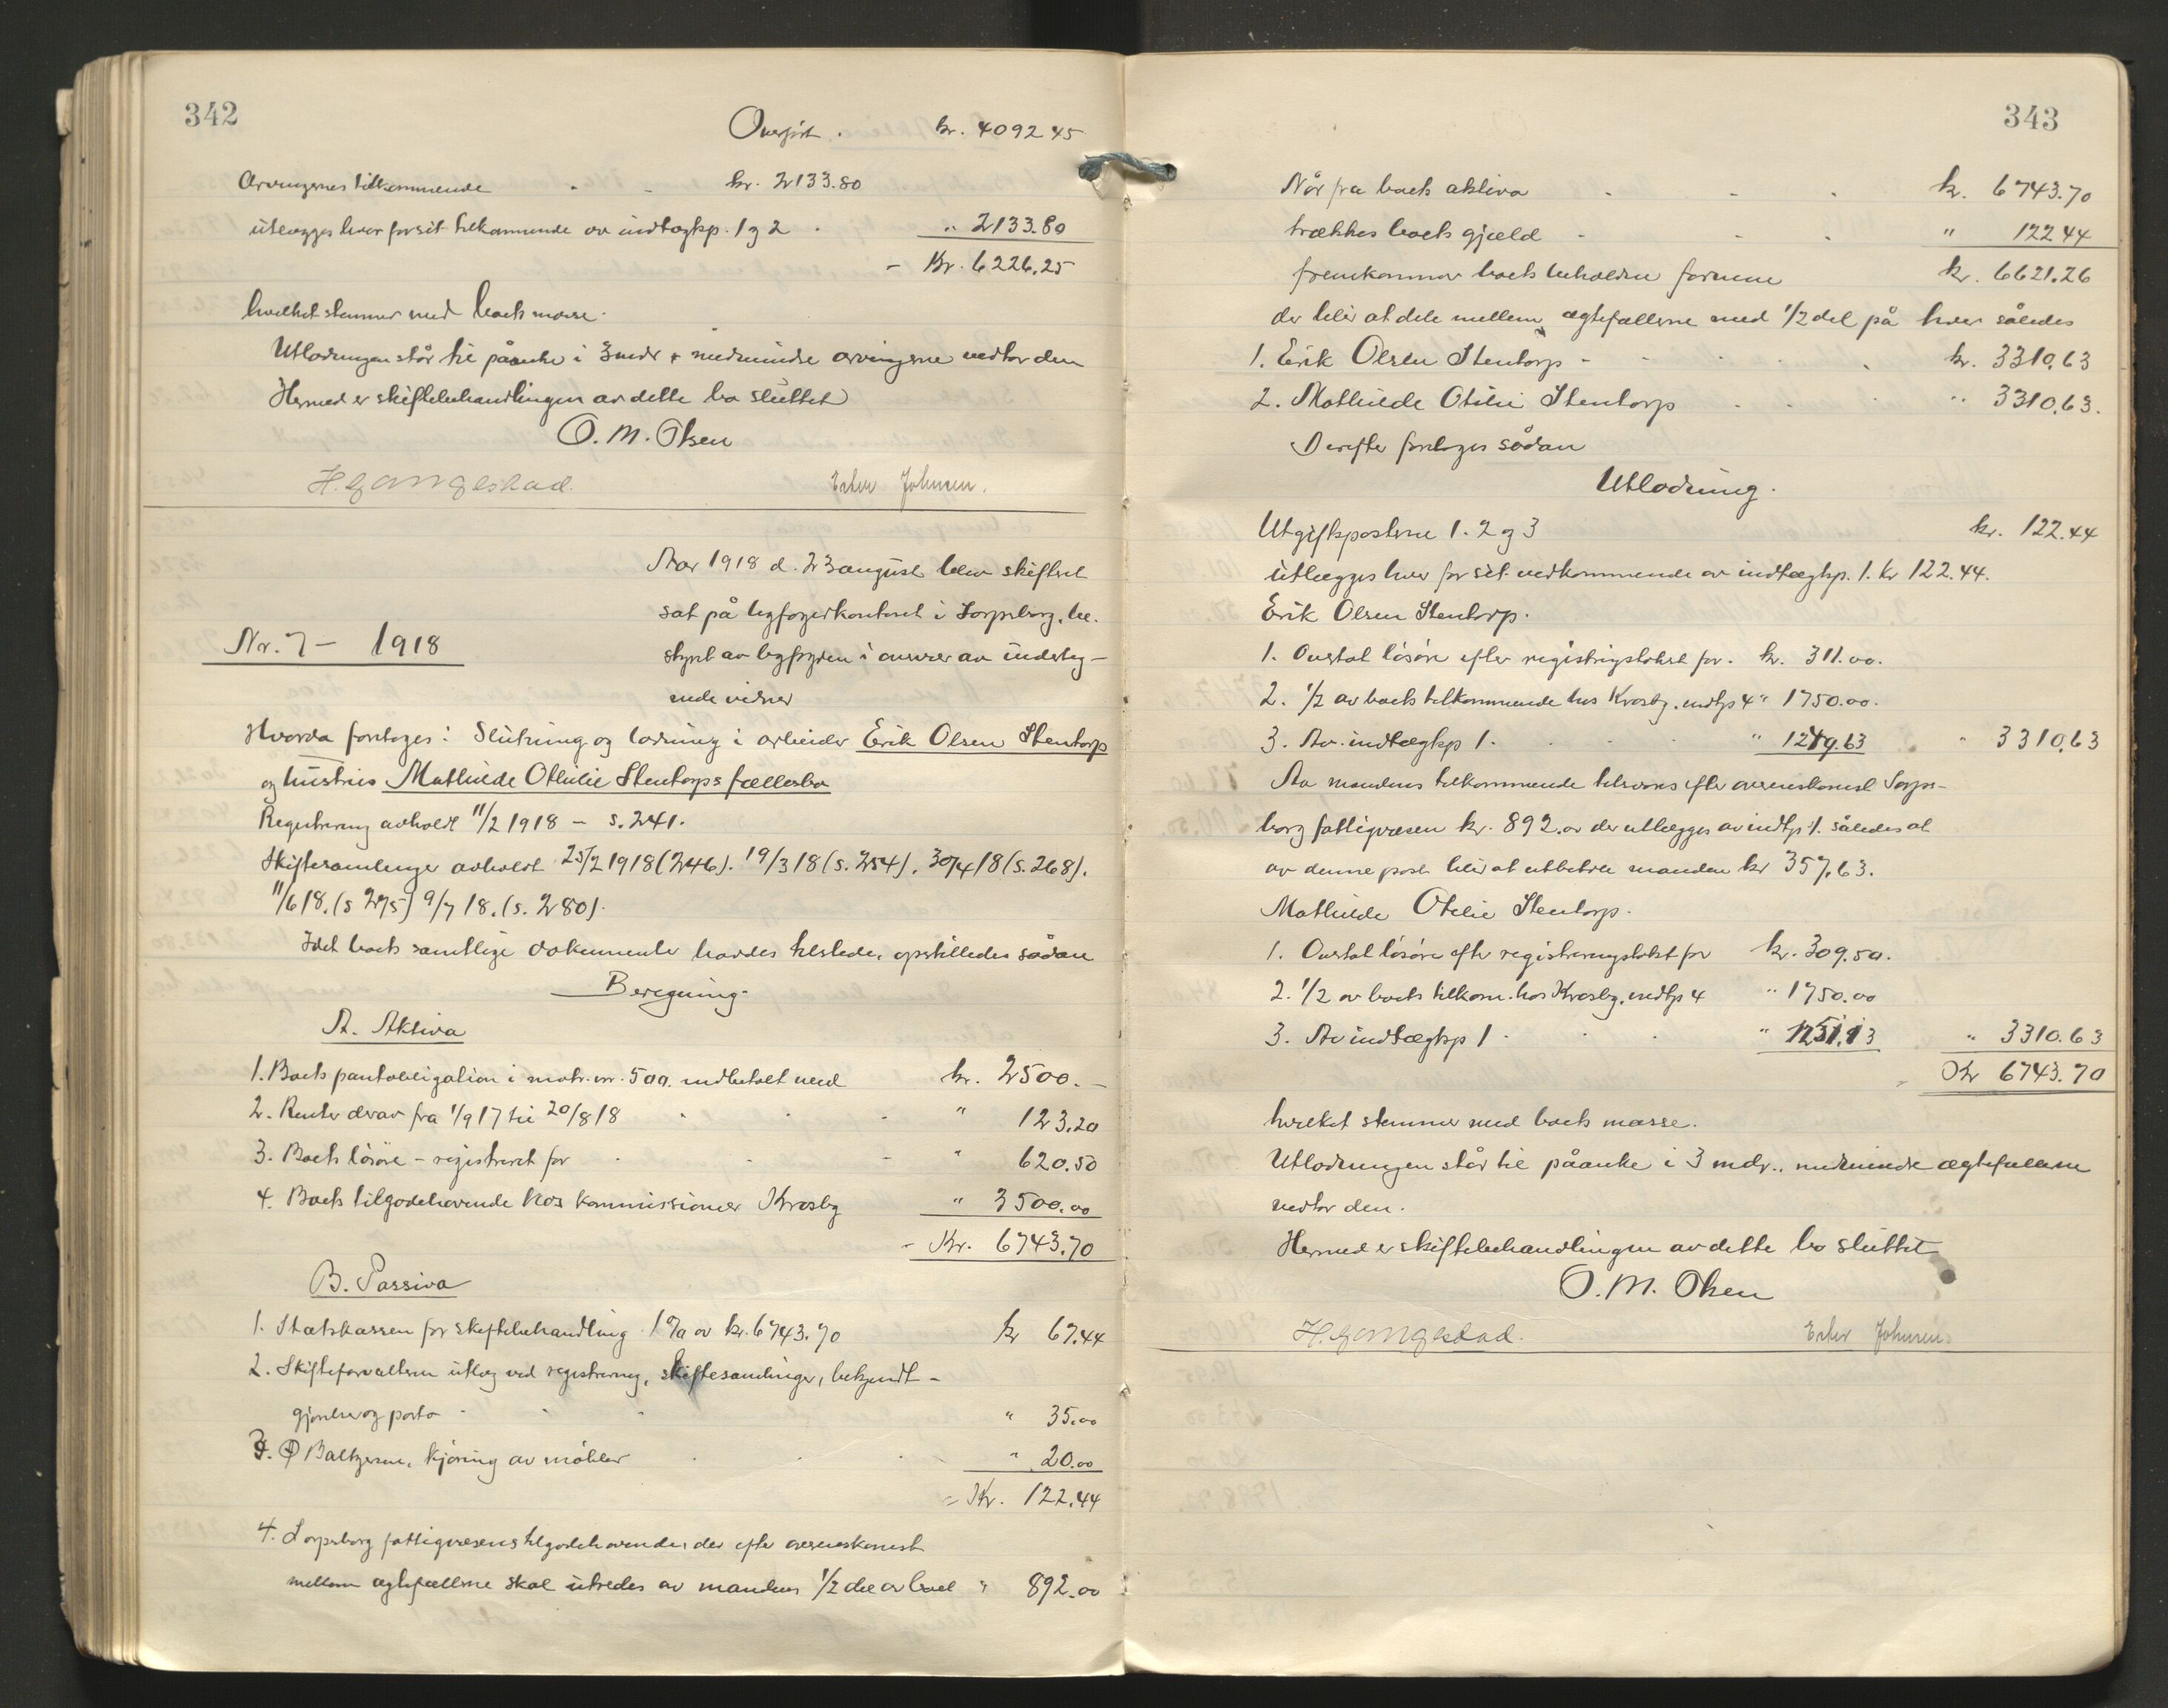 342
Overført . kr. 4092 45
Arvingernes tilkommende . - kr. 2133.80
utlægges hver for sit tilkommende av indtægtsp. 1 og 2 . " 2133.80
- Kr. 6226.25
hvilket stemmer med boets masse.
Utlodningen står til påanke i 3 mdr medmindre arvingerne vedtar den
Hermed er skiftebehandlingen av dette bo sluttet
O. M. Olsen
H. Gangestad. Ester Johnsen.
Aar 1918 d. 23 august blev skifteret
sat på byfogedkontoret i Sarpsborg, be-
styret av byfogden i overvær av underteg-
nede vidner
Nr. 7 - 1918
Hvorda foretoges: Slutning og lodning i arbeider Erik Olsen Stentorp
og hustrus Mathilde Othilie Stentorps fællesbo
Registrering avholdt 11/2 1918 - s. 241.
Skiftesamlinger avholdt 25/2 1918 (246). 19/3 18 (s. 254). 30/4 18 (s. 268).
11/6 18. (s 275) 9/7 18. (s. 280).
Idet boets samtlige dokumenter havdes tilstede, opstilledes sådan
Beregning.
A. Aktiva
1. Boets pantobligation i matr. nr. 500. indbetalt med kr. 2500.-
2. Renter derav fra 1/9 17 til 20/8 18 . . - " 123.20
3. Boets løsøre - registreret for . . - " 620.50
4. Boets tilgodehavende hos kommissionær Krosby " 3500.00
- Kr. 6743.70
B. Passiva
1. Statskassen for skiftebehandling 1 % av kr. 6743.70 kr 67.44
2. Skifteforvalteren utlæg ved registrering, skiftesamlinger, bekjendt-
gjørelse og porto - - - " 35.00
3. O Baltzersen, kjøring av møbler . . . " 20.00
= Kr. 122.44
4. Sarpsborg fattigvæsens tilgodehavende, der efter overenskomst
mellem ægtefællerne skal utredes av mandens 1/2 del av boet " 892.00
343
Når fra boets aktiva . - . kr. 6743.70
trækkes boets gjæld - - . " 122 44
fremkommer boets beholdne formue kr. 6621.26
der blir at dele mellem ægtefællerne med 1/2 del på hver således
1. Erik Olsen Stentorp - - . . . kr. 3310.63
2. Mathilde Otilie Stentorp . . . " 3310.63.
Derefter foretoges sådan
Utlodning.
Utgiftsposterne 1. 2 og 3 kr. 122.44
utlægges hver for sit vedkommende av indtægtsp. 1. kr 122.44.
Erik Olsen Stentorp.
1. Overtat løsøre efter registringstakst for. kr. 311.00.
2. 1/2 av boets tilkommende hos Krosby. indtp 4 " 1750.00.
3. Av indtægtsp 1. . . . " 1249.63 " 3310.63
Av mandens tilkommende tilsvares efter overenskomst Sarps-
borg fattigvæsen kr. 892.00 der utlægges av indtp. 1. således at
av denne post blir at utbetale manden kr 357.63.
Mathilde Otilie Stentorp.
1. Overtat løsøre efter registreringstakst for kr. 309.50.
2. 1/2 av boets tilkom. hos Krosby. indtp 4 " 1750.00
3. Av indtægtsp 1 . . . " 1251.13 " 3310.63
- Kr 6743.70
hvilket stemmer med boets masse.
Utlodningen står til påanke i 3 mdr., medmindre ægtefællerne
vedtar den.
Hermed er skiftebehandlingen av dette bo sluttet
O. M. Olsen
H. Gangestad. Ester Johnsen.